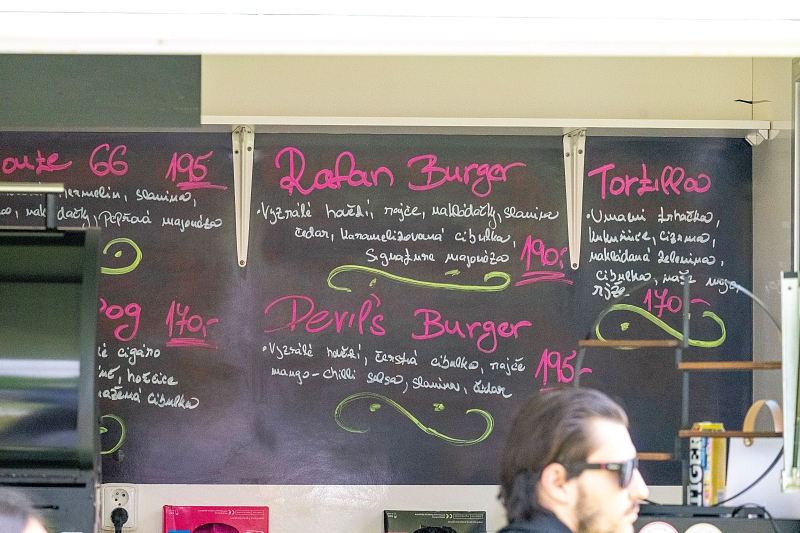 oute 66 195
ermelin, slanina,
Pepřová majonéza
Rafan Burger
•Vyzrálé hovězí, rajče, nakládačky, slanina
čedar, karamelizovaná cibulka,
Signature majonéza 190,-
Tortilla
•Umami trhačka,
kukuřice, cizrna,
nakládaná zelenina,
cibulka, naše mayo,
rajče 170,-
og 170,-
é cigáro
hořčice
ažená cibulka
Devil's Burger
•Vyzrálé hovězí, čerstvá cibulka, rajče
mango-chilli salsa, slanina, čedar 195,-
TIGER